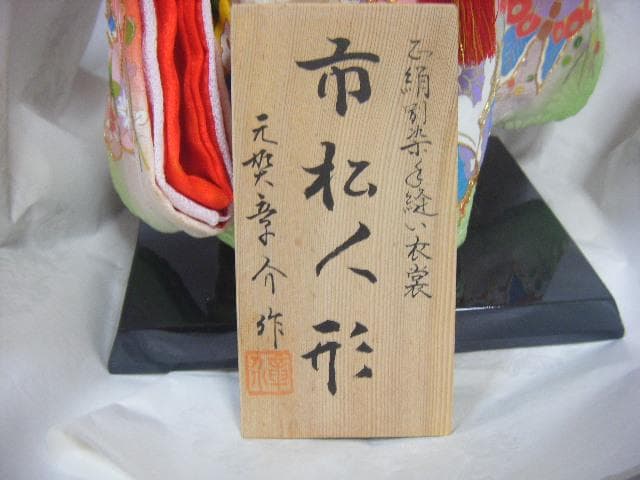 正絹別染手縫い衣裳
市松人形
元樊章介作